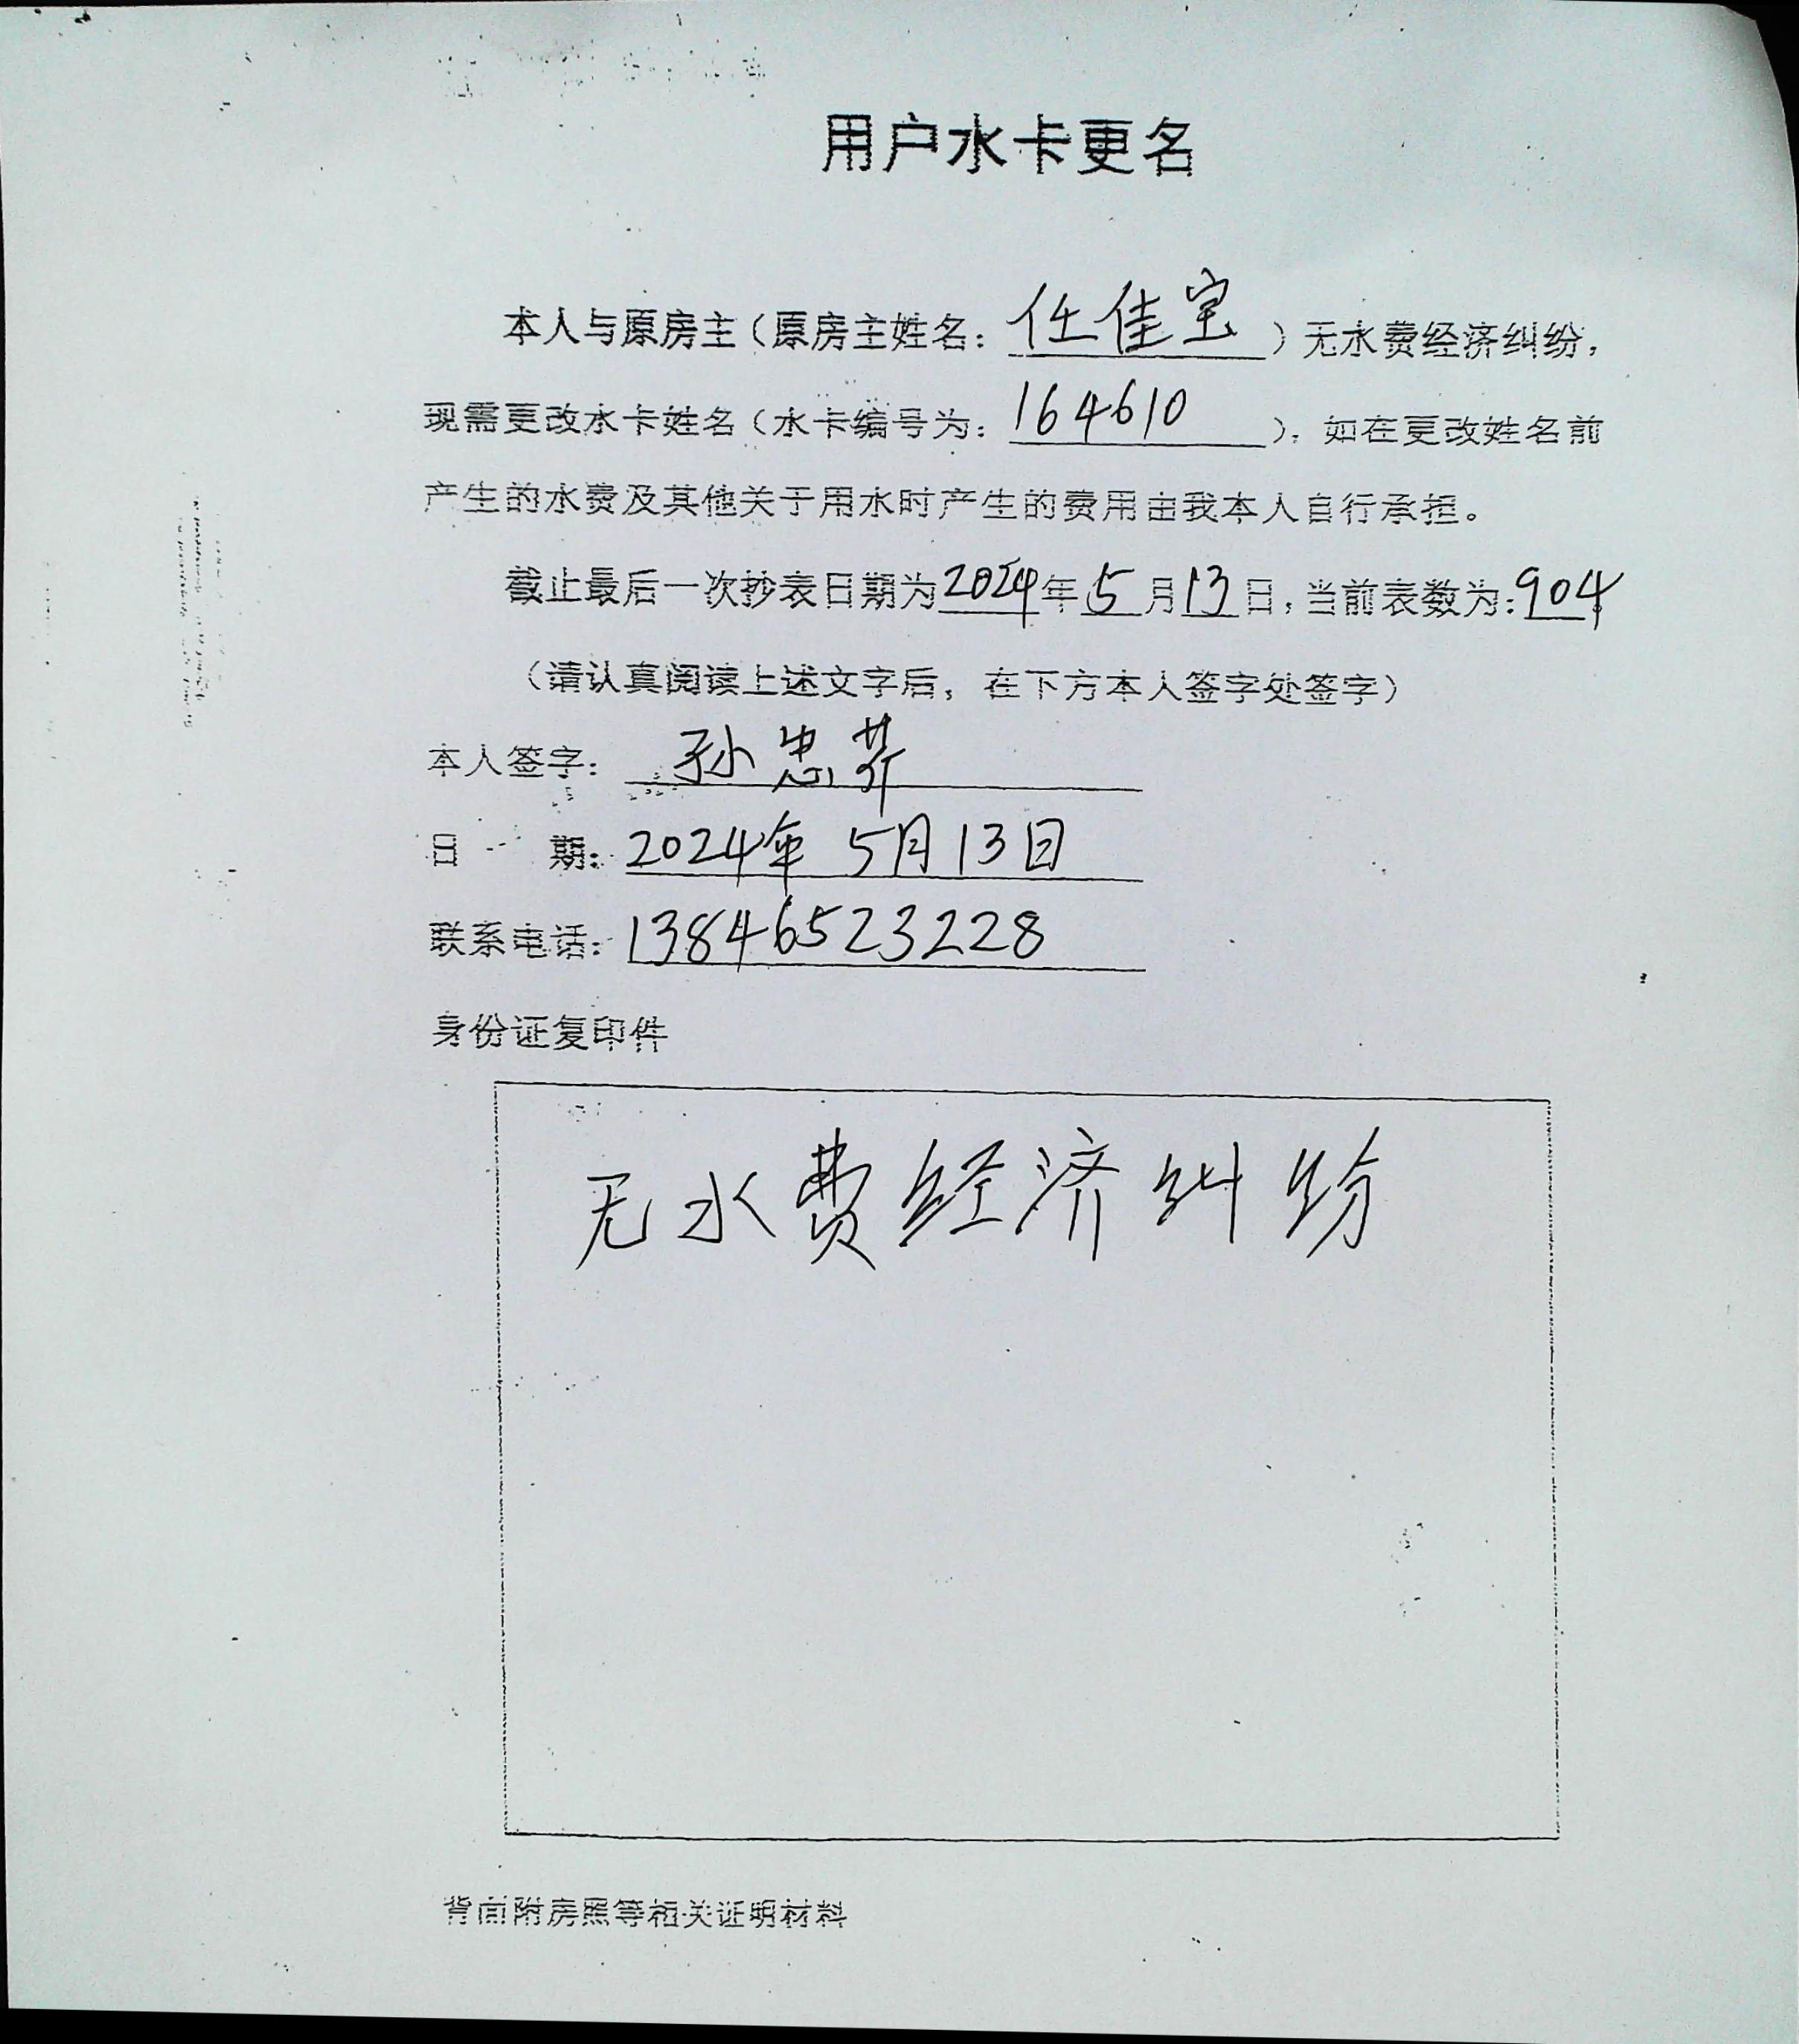 用户水卡更名
本人与原房主（原房主姓名：任佳宝）无水费经济纠纷，
现需更改水卡姓名（水卡编号为：164610）。如在更改姓名前
产生的水费及其他关于用水时产生的费用由我本人自行承担。
截止最后一次抄表日期为2024年5月13日，当前表数为：904
（请认真阅读上述文字后，在下方本人签字处签字）
本人签字：孙忠芹
日期：2024年 5月13日
联系电话：13846523228
身份证复印件
无水费经济纠纷
背面附房照等相关证明材料